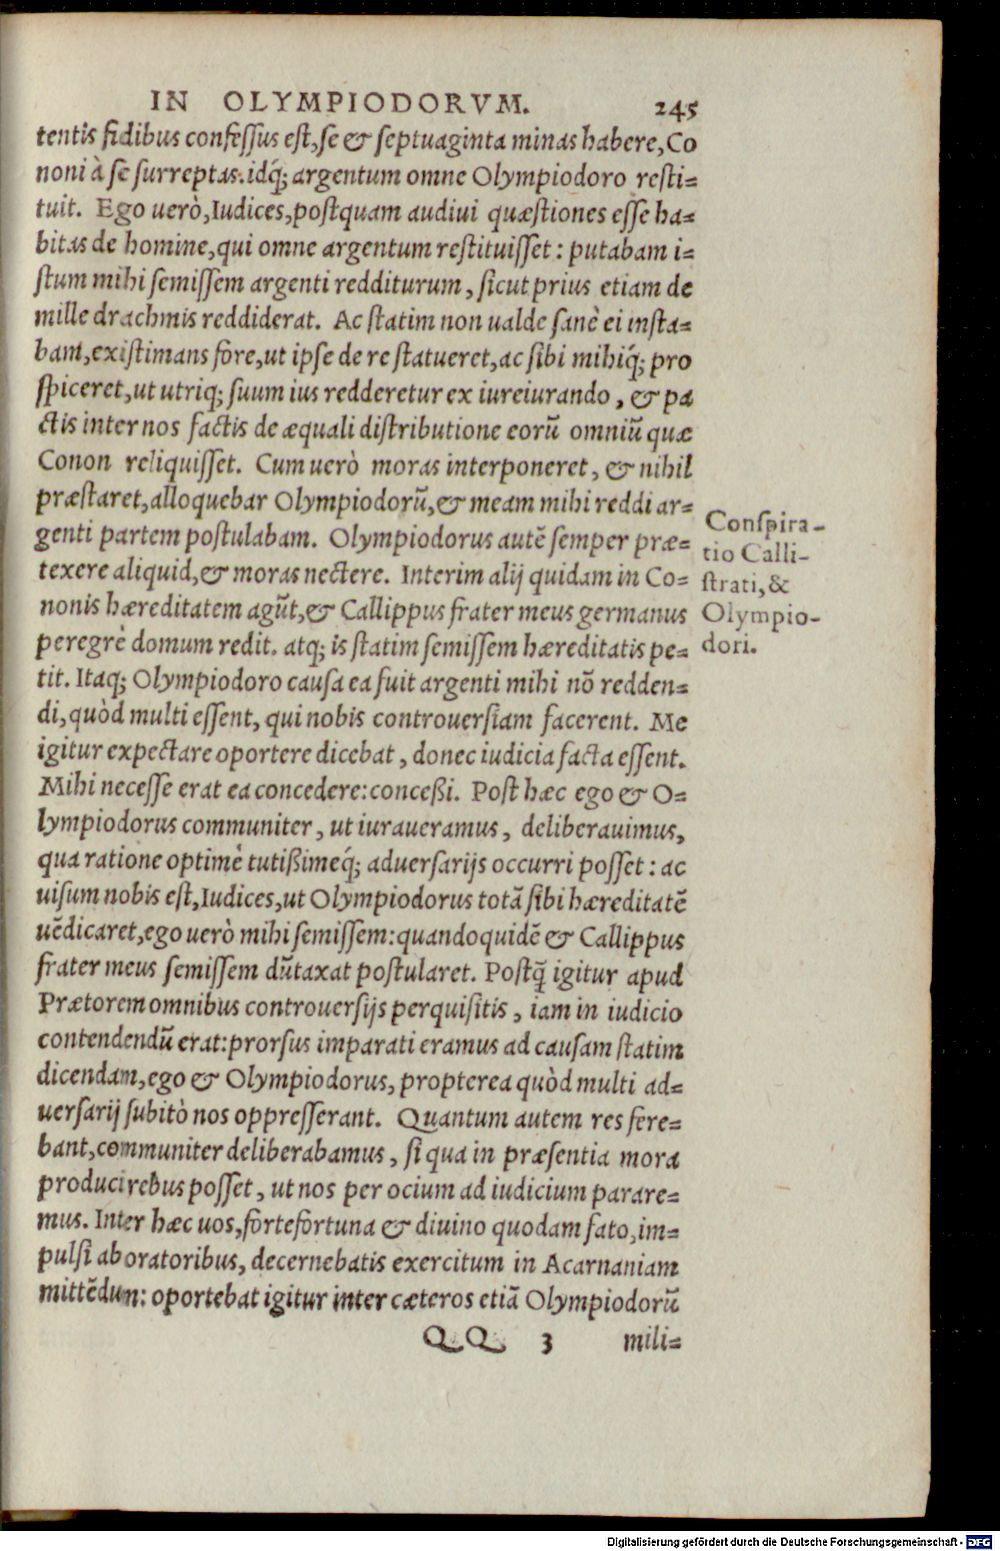 IN OLYMPIODORVM. 245
tentis fidibus confessus est, se & septuaginta minas habere, Co
noni à se surreptas. idq́; argentum omne Olympiodoro resti-
tuit. Ego uerò, Iudices, postquam audiui quæstiones esse ha-
bitas de homine, qui omne argentum restituisset: putabam i-
stum mihi semissem argenti redditurum, sicut prius etiam de
mille drachmis reddiderat. Ac statim non ualde sanè ei insta-
bam, existimans fore, ut ipse de re statueret, ac sibi mihiq́; pro
spiceret, ut utriq; suum ius redderetur ex iureiurando, & pa
ctis inter nos factis de æquali distributione eorũ omniũ quæ
Conon reliquisset. Cum uerò moras interponeret, & nihil
præstaret, alloquebar Olympiodorũ, & meam mihi reddi ar-
genti partem postulabam. Olympiodorus autẽ semper præ-
texere aliquid, & moras nectere. Interim alij quidam in Co-
nonis hæreditatem agũt, & Callippus frater meus germanus
peregrè domum redit. atq; is statim semissem hæreditatis pe-
tit. Itaq; Olympiodoro causa ea fuit argenti mihi nõ redden-
di, quòd multi essent, qui nobis controuersiam facerent. Me
igitur expectare oportere dicebat, donec iudicia facta essent.
Mihi necesse erat ea concedere: conceßi. Post hæc ego & O-
lympiodorus communiter, ut iuraueramus, deliberauimus,
qua ratione optimè tutißimeq́; aduersarijs occurri posset: ac
uisum nobis est, Iudices, ut Olympiodorus totã sibi hæreditatẽ
uẽdicaret, ego uerò mihi semissem: quandoquidẽ & Callippus
frater meus semissem dũtaxat postularet. Postq̃ igitur apud
Prætorem omnibus controuersijs perquisitis, iam in iudicio
contendendũ erat: prorsus imparati eramus ad causam statim
dicendam, ego & Olympiodorus, propterea quòd multi ad-
uersarij subitò nos oppresserant. Quantum autem res fere-
bant, communiter deliberabamus, si qua in præsentia mora
produci rebus posset, ut nos per ocium ad iudicium parare-
mus. Inter hæc uos, forte fortuna & diuino quodam fato, im-
pulsi ab oratoribus, decernebatis exercitum in Acarnaniam
mittẽdum: oportebat igitur inter cæteros etiã Olympiodorũ
QQ 3 mili-
Conspira-
tio Calli-
strati, &
Olympio-
dori.
Digitalisierung gefördert durch die Deutsche Forschungsgemeinschaft - DFG